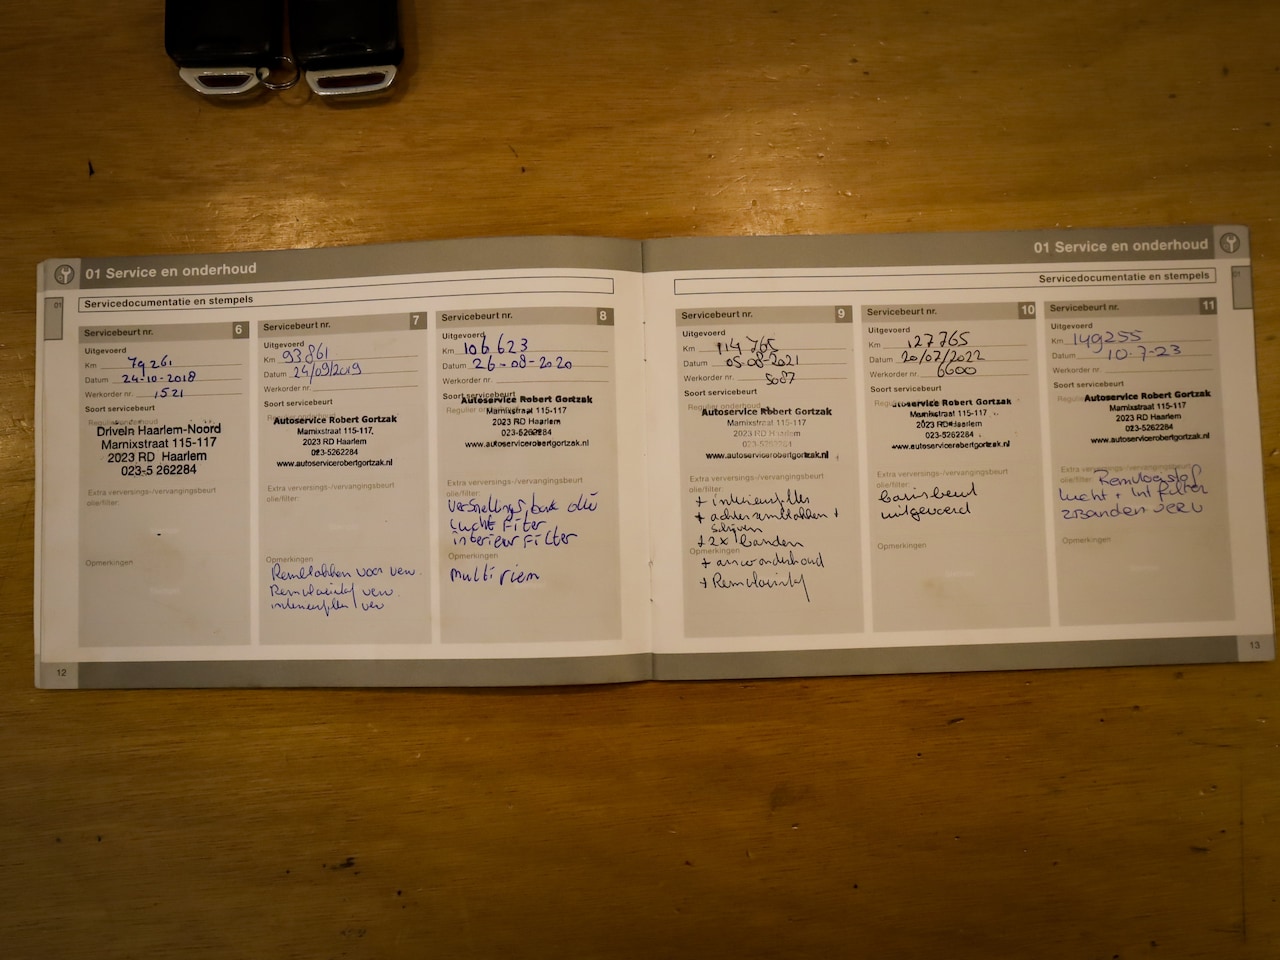 01 Service en onderhoud
01
Servicedocumentatie en stempels
Servicebeurt nr. 6
Uitgevoerd
Km 79 261
Datum 24-10-2018
Werkorder nr. 1521
Soort servicebeurt
Regulier onderhoud
DriveIn Haarlem-Noord
Marnixstraat 115-117
2023 RD Haarlem
023-5 262284
Extra verversings-/vervangingsbeurt
olie/filter:
Opmerkingen
Servicebeurt nr. 7
Uitgevoerd
Km 93861
Datum 24/09/2019
Werkorder nr.
Soort servicebeurt
Autoservice Robert Gortzak
Marnixstraat 115-117,
2023 RD Haarlem
023-5262284
www.autoservicerobertgortzak.nl
Extra verversings-/vervangingsbeurt
olie/filter:
Opmerkingen
Remblokken voor verv.
Remvloeistof verv.
interieurfilter verv
Servicebeurt nr. 8
Uitgevoerd
Km 106 623
Datum 26-08-2020
Werkorder nr.
Soort servicebeurt
Autoservice Robert Gortzak
Marnixstraat 115-117
2023 RD Haarlem
023-5262284
www.autoservicerobertgortzak.nl
Extra verversings-/vervangingsbeurt
olie/filter:
Versnellingsbak olie
Lucht Filter
interieur Filter
Opmerkingen
multiriem
12
01 Service en onderhoud
01
Servicedocumentatie en stempels
Servicebeurt nr. 9
Uitgevoerd
Km 114 765
Datum 05-08-2021
Werkorder nr. 5087
Soort servicebeurt
Autoservice Robert Gortzak
Marnixstraat 115-117
2023 RD Haarlem
www.autoservicerobertgortzak.nl
Extra verversings-/vervangingsbeurt
olie/filter:
+ interieurfilter
+ achterremblokken +
schijven
+ 2x banden
Opmerkingen
+ aircoonderhoud
+ Remvloeistof
Servicebeurt nr. 10
Uitgevoerd
Km 127765
Datum 20/07/2022
Werkorder nr. 6600
Soort servicebeurt
Autoservice Robert Gortzak
Marnixstraat 115-117
2023 RD Haarlem
023-5262284
www.autoservicerobertgortzak.nl
Extra verversings-/vervangingsbeurt
olie/filter:
basisbeurt
uitgevoerd
Opmerkingen
Servicebeurt nr. 11
Uitgevoerd
Km 149255
Datum 10-7-23
Werkorder nr.
Soort servicebeurt
Autoservice Robert Gortzak
Marnixstraat 115-117
2023 RD Haarlem
023-5262284
www.autoservicerobertgortzak.nl
Extra verversings-/vervangingsbeurt
olie/filter:
Remvloeistof
Lucht + Int filter
2 Banden verv
Opmerkingen
13